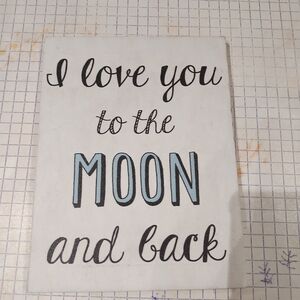 I love you
to the
MOON
and back